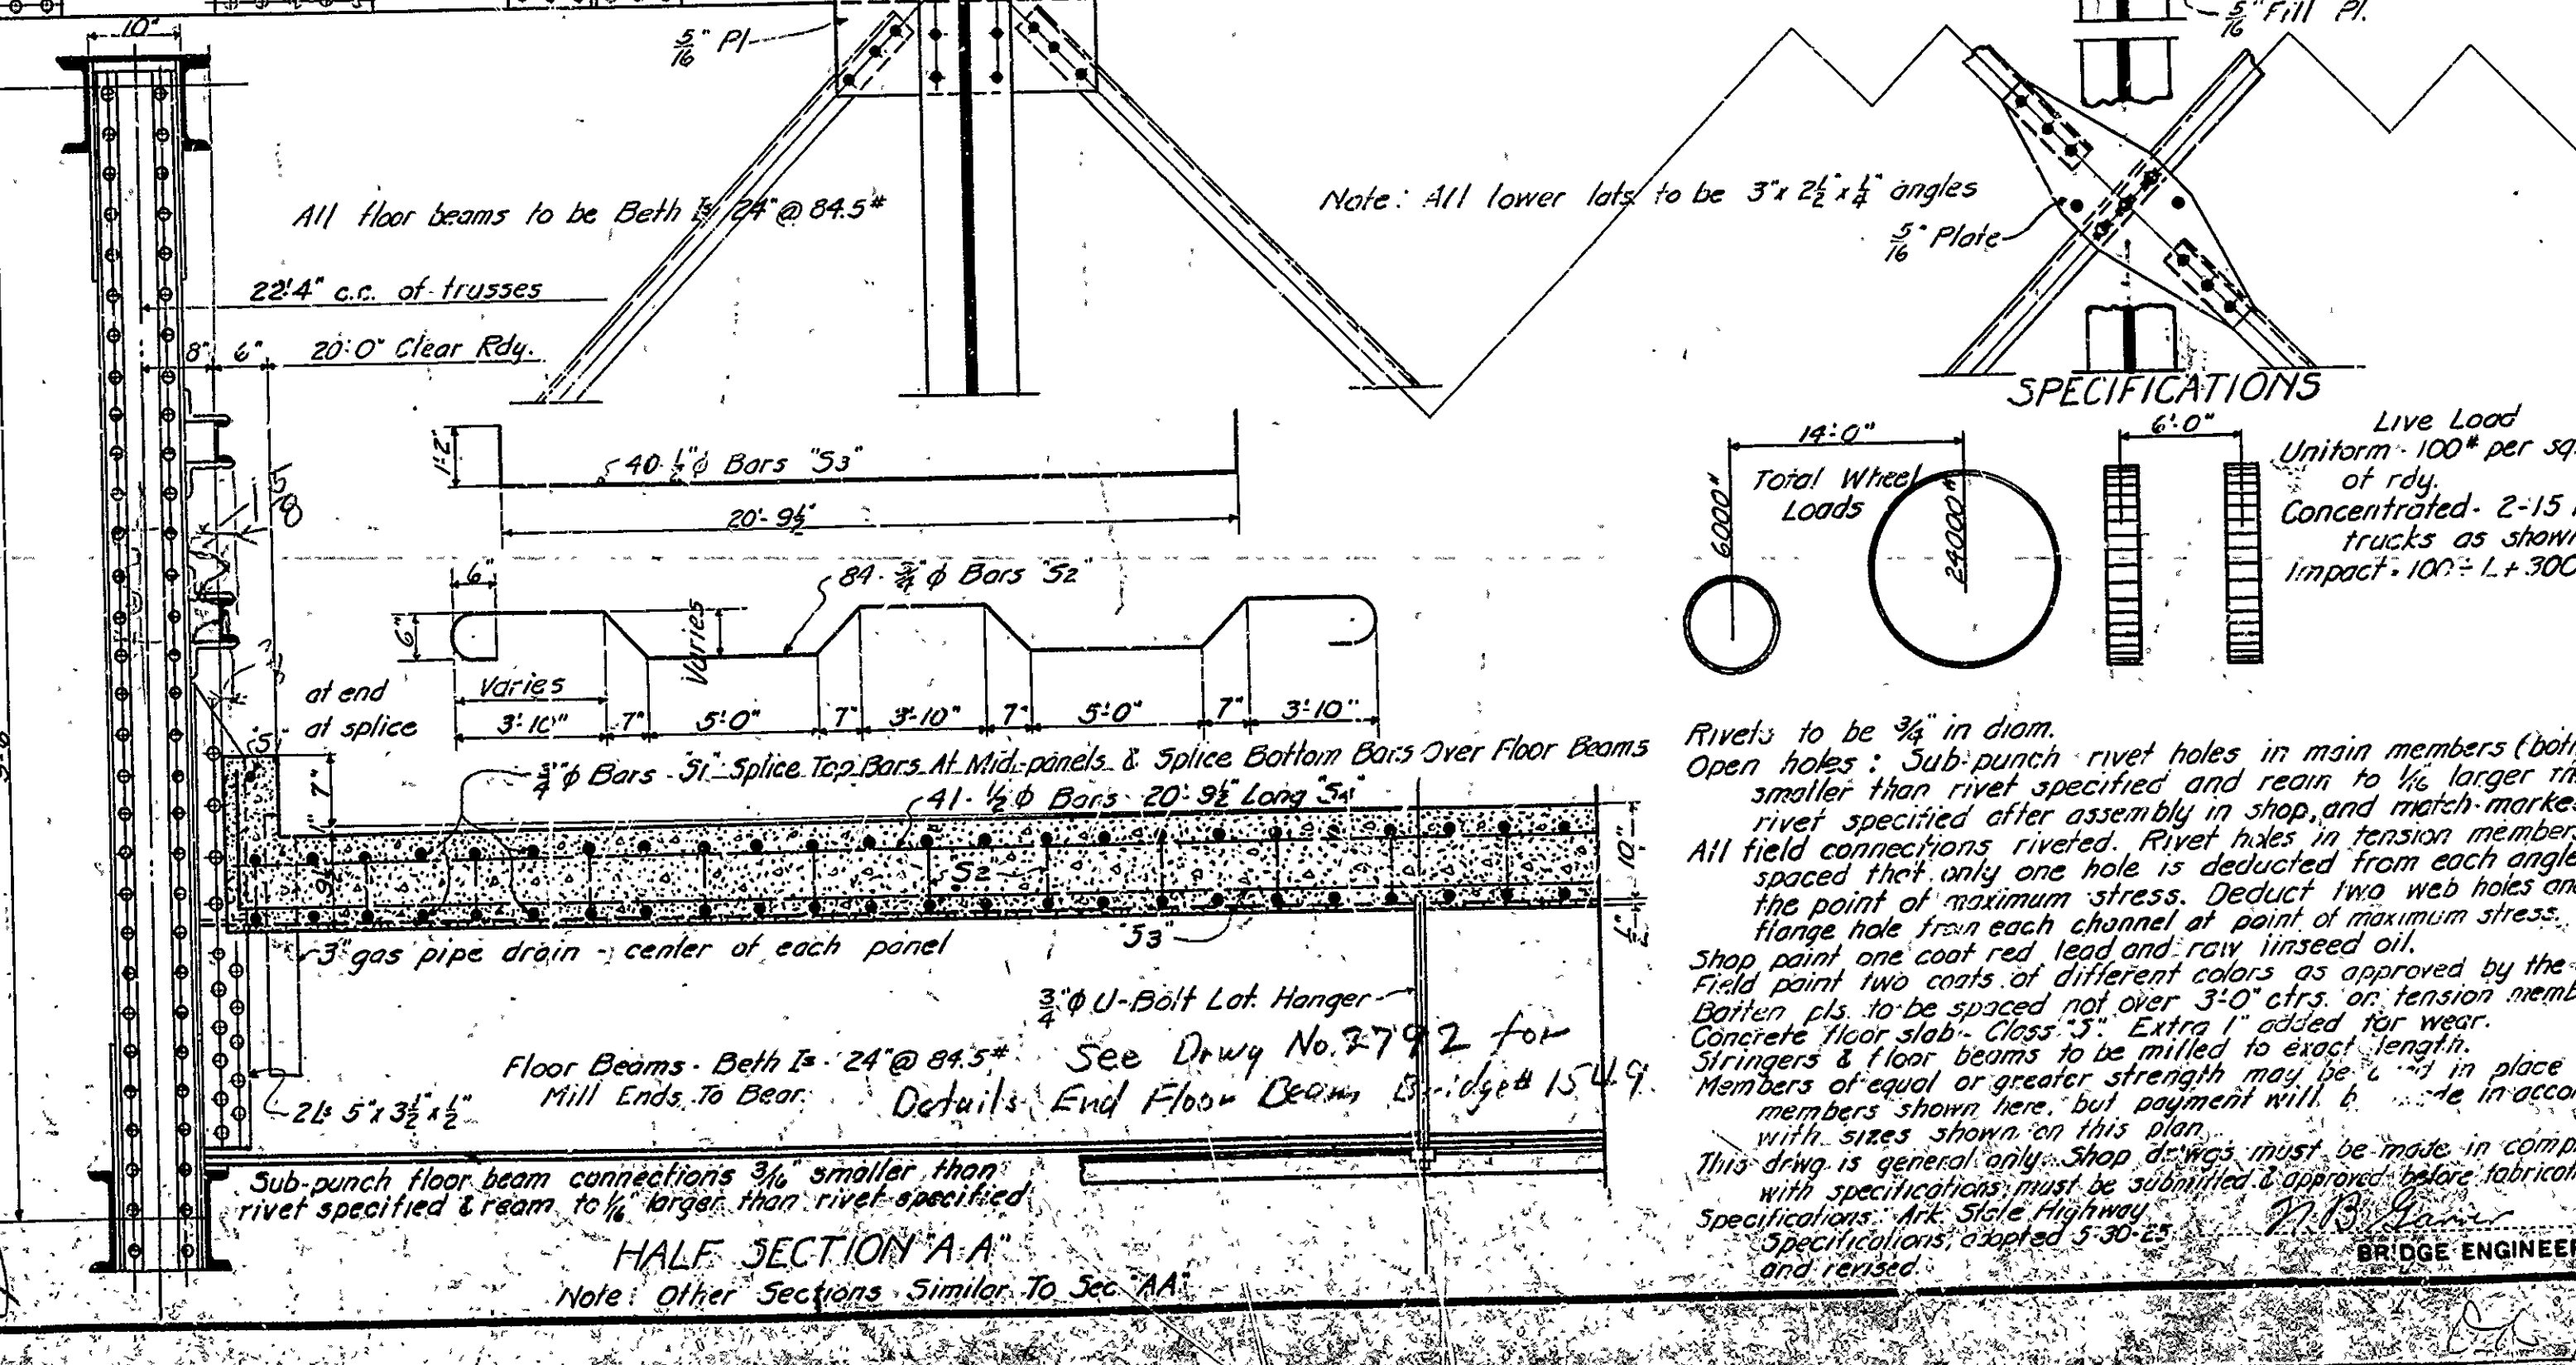 10"
5/16" Pl
5/16" Fill Pl.
All floor beams to be Beth Is 24" @ 84.5#
Note: All lower lats to be 3"x 2½"x¼" angles
5/16" Plate
22'-4" c.c. of trusses
8" 6" 20'-0" Clear Rdy.
SPECIFICATIONS
1'-2"
40-½"ϕ Bars "S3"
20'-9½"
14'-0"
6'-0"
Total Wheel
Loads
6000#
24000#
Live Load
Uniform - 100# per sq
of rdy.
Concentrated - 2-15
trucks as shown
Impact = 100 ÷ L + 300
5/8
6"
84-¾"ϕ Bars "S2"
6"
Varies
Varies
at end
at splice
3'-10" 7" 5'-0" 7" 3'-10" 7" 5'-0" 7" 3'-10"
¾"ϕ Bars - "S1" Splice Top Bars At Mid-panels & Splice Bottom Bars Over Floor Beams
41-½ϕ Bars - 20'-9½" Long "S4"
7"
1"
9½"
10"
"S2"
"S3"
3" gas pipe drain - center of each panel
¾"ϕ U-Bolt Lat. Hanger
Floor Beams - Beth Is 24" @ 84.5#
Mill Ends To Bear.
See Drwg No. 2792 for
Details End Floor Beam Bridge # 1549
2Ls 5"x 3½"x ½"
Sub-punch floor beam connections 3/16" smaller than
rivet specified & ream to 1/16" larger than rivet specified
HALF SECTION "A-A"
Note: Other Sections Similar To Sec. "AA"
Rivets to be ¾" in diam.
Open holes: Sub-punch rivet holes in main members
smaller than rivet specified and ream to 1/16" larger
rivet specified after assembly in shop, and match-marke
All field connections riveted. Rivet holes in tension members
spaced that only one hole is deducted from each angle
the point of maximum stress. Deduct two web holes and
flange hole from each channel at point of maximum stress.
Shop paint one coat red lead and raw linseed oil.
Field paint two coats of different colors as approved by the
Batten pls. to be spaced not over 3'-0" ctrs. on tension memb
Concrete floor slab - Class "S". Extra 1" added for wear.
Stringers & floor beams to be milled to exact length.
Members of equal or greater strength may be in place
members shown here, but payment will in accor
with sizes shown on this plan.
This drwg. is general only. Shop drwgs must be made in comp
with specifications, must be submitted & approved before fabrica
Specifications: Ark State Highway
Specifications, adopted 5-30-25
and revised.
BRIDGE ENGINEER